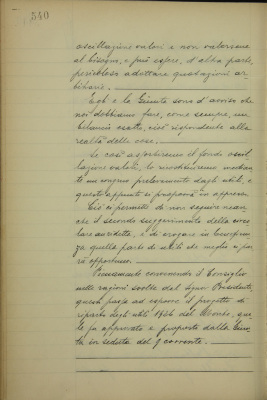 540
oscillazione valori e non valersene
al bisogno, e può essere, d'altra parte,
pericoloso adottare quotazioni ar
bitrarie.
Egli e la Giunta sono d'avviso che
noi dobbiamo fare, come sempre, un
bilancio esatto, cioè rispondente alla
realtà delle cose.
Se così adopereremo il fondo oscil
lazione valori, lo ricostituiremo median
te un congruo prelevamento dagli utili, e
questo appunto si proporrà in appresso.
Ciò ci permette di non seguire nean
che il secondo suggerimento della circo
lare suddetta, e di erogare in beneficen
za quella parte di utili che meglio si par
rà opportuno.
Pienamente convenendo il Consiglio
nelle ragioni svolte dal Signor Presidente,
questi passa ad esporre il progetto di
riparto degli utili del Monte, qua
le fu approvato e proposto dalla Giun
ta in seduta del 9 corrente.